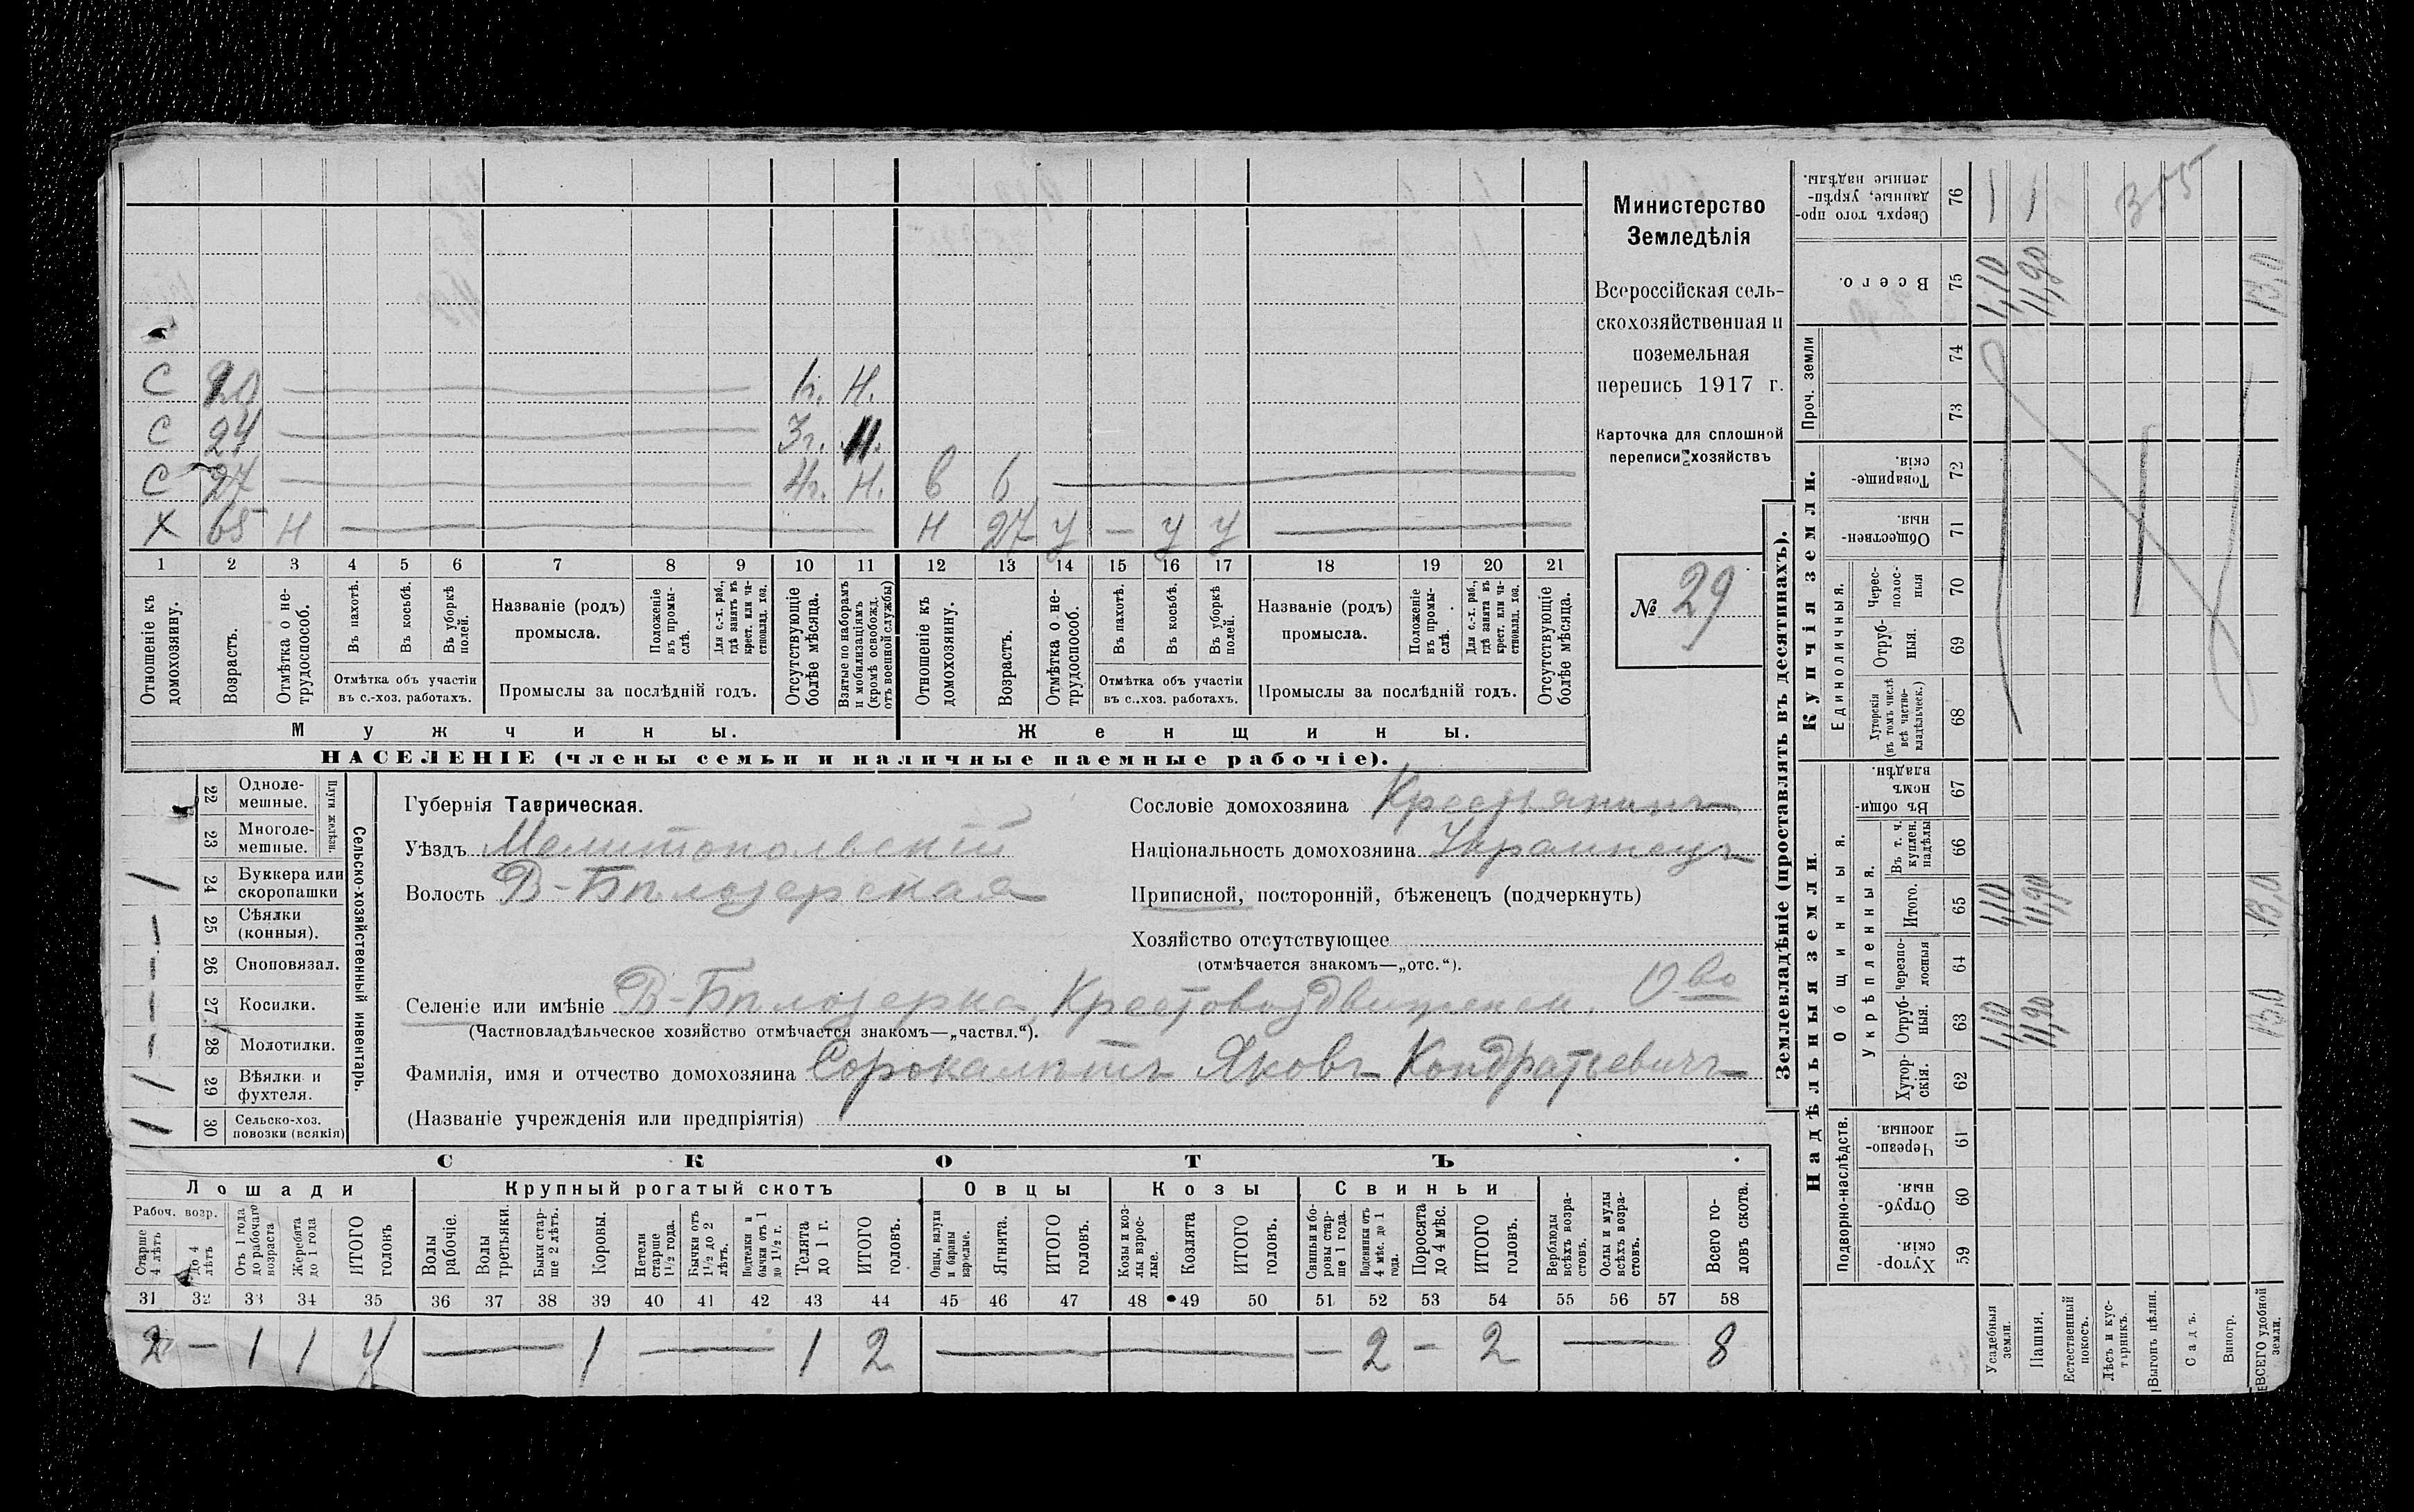 С 20 1г. Н.
С 24 3г. Н.
С 27 4г. Н. в 6
Х 65 Н Н 27 У — У У
1 2 3 4 5 6 7 8 9 10 11 12 13 14 15 16 17 18 19 20 21
Отношеніе къ домохозяину.
Возрастъ.
Отмѣтка о нетрудоспособ.
Въ пахотѣ.
Въ косьбѣ.
Въ уборкѣ полей.
Отмѣтка объ участіи
въ с.-хоз. работахъ.
Названіе (родъ)
промысла.
Положеніе въ промыслѣ.
Для с.-х. раб., гдѣ занятъ въ крест. или частновлад. хоз.
Промыслы за послѣдній годъ.
Отсутствующіе болѣе мѣсяца.
Взятые по наборамъ и мобилизаціямъ (кромѣ освобожд. отъ военной службы)
Отношеніе къ домохозяину.
Возрастъ.
Отмѣтка о нетрудоспособ.
Въ пахотѣ.
Въ косьбѣ.
Въ уборкѣ полей.
Отмѣтка объ участіи
въ с.-хоз. работахъ.
Названіе (родъ)
промысла.
Положеніе въ промыслѣ.
Для с.-х. раб., гдѣ занята въ крест. или частновлад. хоз.
Промыслы за послѣдній годъ.
Отсутствующіе болѣе мѣсяца.
Мужчины. Женщины.
НАСЕЛЕНІЕ (члены семьи и наличные наемные рабочіе).
Министерство
Земледѣлія
Всероссійская сель-
скохозяйственная и
поземельная
перепись 1917 г.
Карточка для сплошной
переписи хозяйствъ
№ 29
Сельско-хозяйственный инвентарь.
Плуги желѣзн.
22 Одноле-
мешные.
23 Многоле-
мешные.
1 24 Буккера или
скоропашки
— 25 Сѣялки
(конныя).
— 26 Сноповязал.
— 27 Косилки.
— 28 Молотилки.
1 29 Вѣялки и
фухтеля.
1 30 Сельско-хоз.
повозки (всякія)
Губернія Таврическая.
Уѣздъ Мелитопольскій
Волость В-Бѣлозерская
Сословіе домохозяина Крестьянинъ
Національность домохозяина Украинецъ
Приписной, посторонній, бѣженецъ (подчеркнуть)
Хозяйство отсутствующее
(отмѣчается знакомъ—„отс.“).
Селеніе или имѣніе В-Бѣлозерка, Крестовоздвиженск. О-во
(Частновладѣльческое хозяйство отмѣчается знакомъ—„частвл.“).
Фамилія, имя и отчество домохозяина Сорокалѣтъ Яковъ Кондратьевичъ
(Названіе учрежденія или предпріятія)
СКОТЪ.
Лошади Крупный рогатый скотъ Овцы Козы Свиньи
Рабоч. возр.
Старше 4 лѣтъ
До 4 лѣтъ
Отъ 1 года до рабочаго возраста
Жеребята до 1 года
ИТОГО головъ
Волы рабочіе.
Волы третьяки.
Быки старше 2 лѣтъ.
Коровы.
Нетели старше 1½ года.
Бычки отъ 1½ до 2 лѣтъ.
Подтелки и бычки отъ 1 до 1½ г.
Телята до 1 г.
ИТОГО головъ.
Овцы, валухи и бараны взрослые.
Ягнята.
ИТОГО головъ.
Козы и козлы взрослые.
Козлята
ИТОГО головъ.
Свиньи и боровы старше 1 года.
Подсвинки отъ 4 мѣс. до 1 года.
Поросята до 4 мѣс.
ИТОГО головъ.
Верблюды всѣхъ возрастовъ.
Ослы и мулы всѣхъ возрастовъ.
Всего головъ скота.
31 32 33 34 35 36 37 38 39 40 41 42 43 44 45 46 47 48 49 50 51 52 53 54 55 56 57 58
2 — 1 1 4 — 1 — 1 2 — — 2 — 2 — 8
Землевладѣніе (проставлять въ десятинахъ).
Сверхъ того проданные, укрѣпленные надѣлы. 76 1 1 355
Всего. 75 1,10 11,90 13,0
Купчія земли.
Проч. земли
74
73
Товарищескія. 72
Общественныя. 71
Единоличныя.
Чересполосныя 70
Отрубныя. 69
Хуторскія (въ томъ числѣ всѣ частновладѣльческ.) 68
Надѣльныя земли.
Общинныя.
Въ общинномъ владѣн. 67
Укрѣпленныя.
Въ т. ч. куплен. надѣлы 66
Итого. 65 1,10 11,90 13,0
Черезполосныя 64
Отрубныя. 63 1,10 11,90 13,0
Хуторскія. 62
Подворно-наслѣдств.
Черезполосныя. 61
Отрубныя. 60
Хуторскія. 59
Усадебныя земли.
Пашня.
Естественный покосъ.
Лѣсъ и кустарникъ.
Выгонъ цѣлин.
Садъ.
Виногр.
ВСЕГО удобной земли.